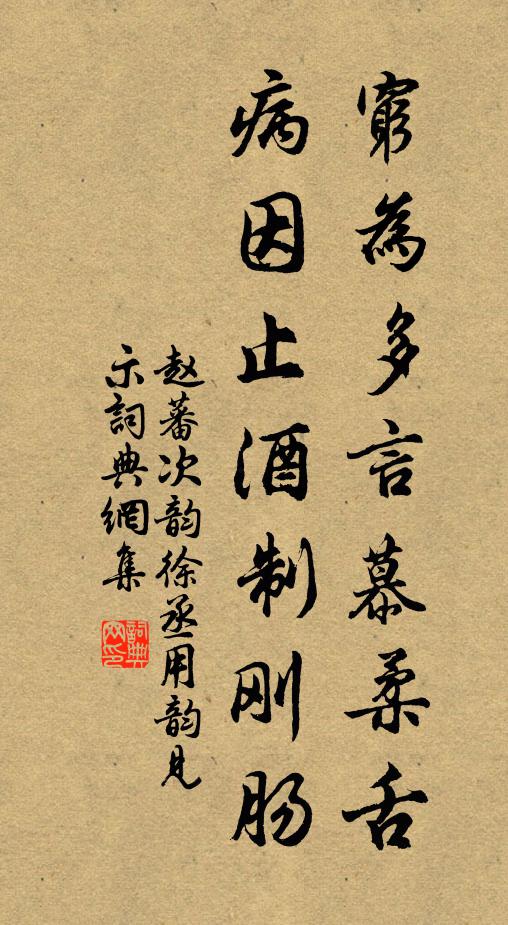 窮為多言慕柔舌
病因止酒制刚肠
赵蕃次韵徐丞用韵见
示詞典網集
詞典网印